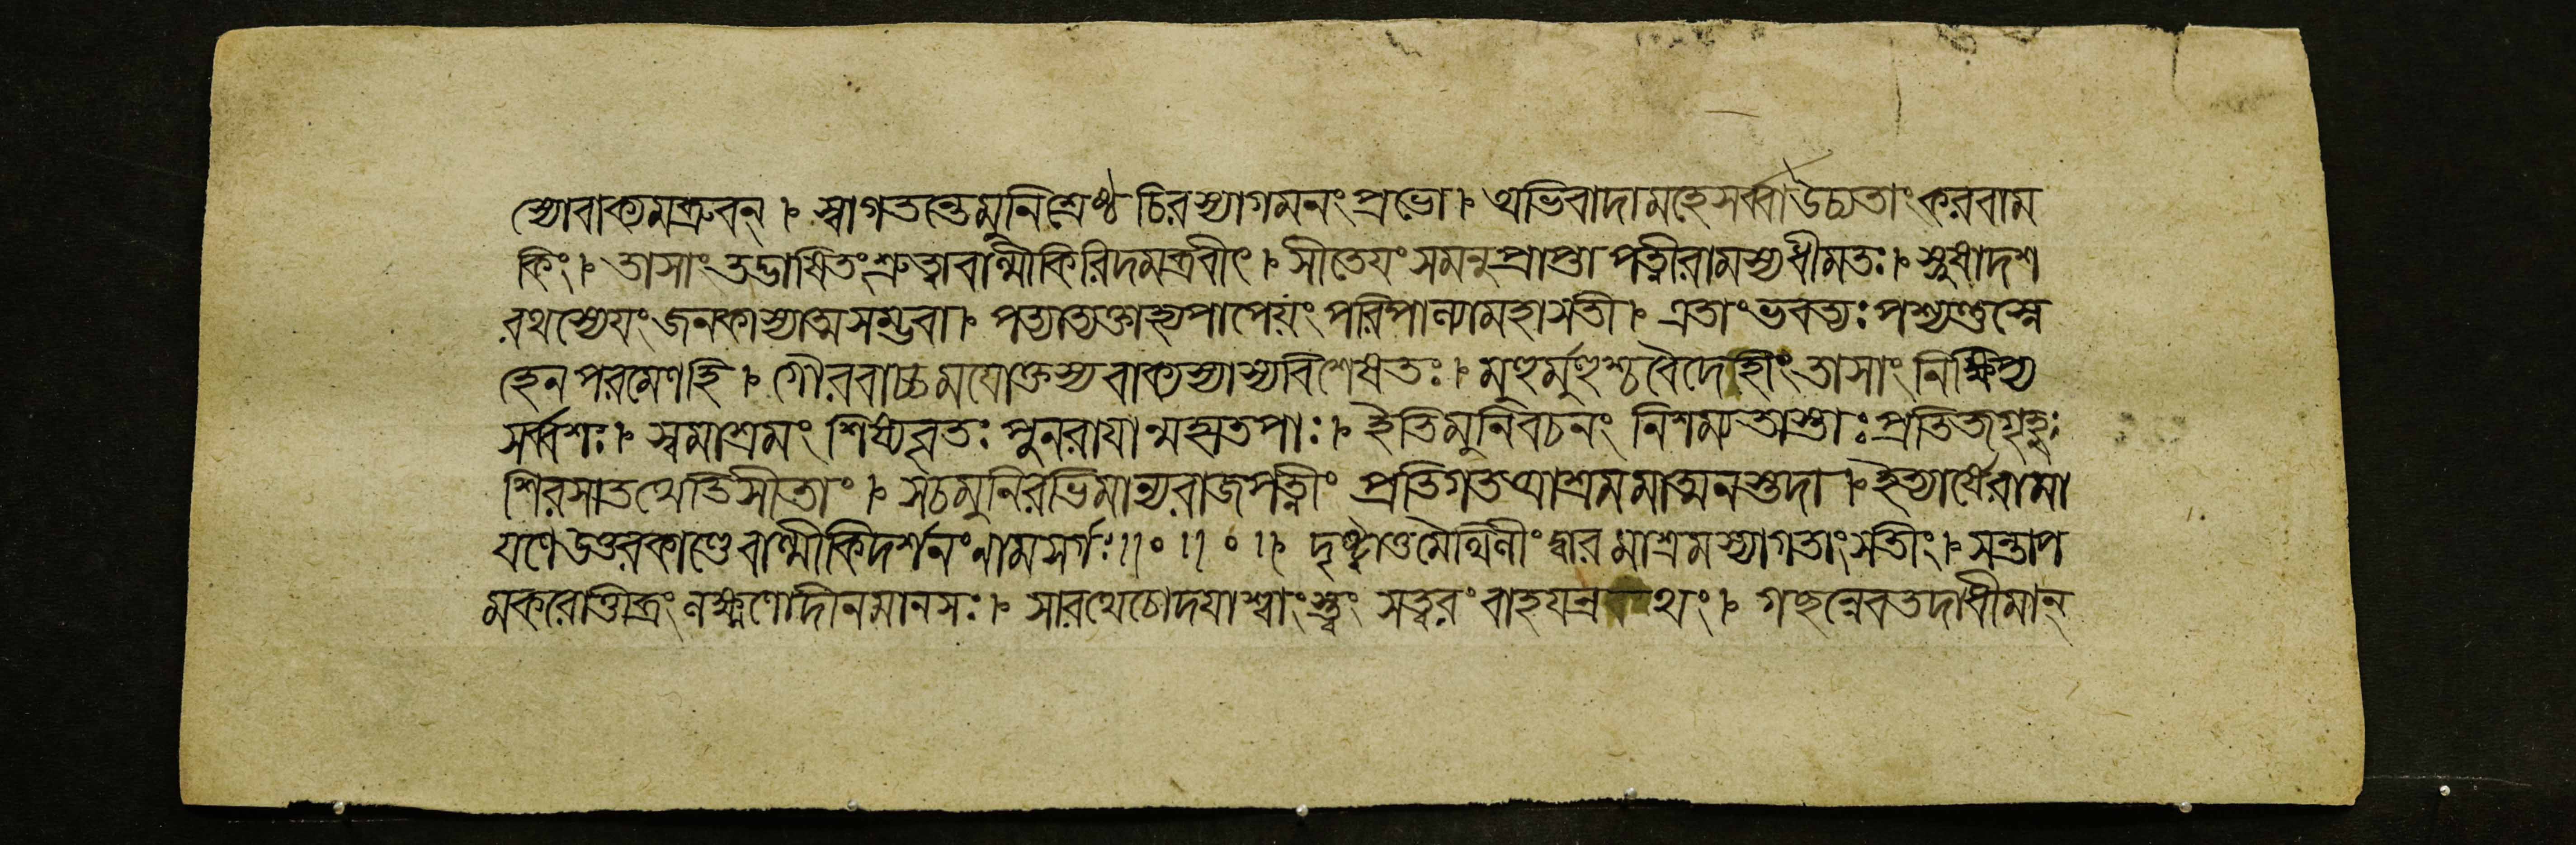 স্যোবাক্যমব্রুবন্ ৷ স্বাগতন্তেমুনিশ্রেষ্ঠ চিরস্যাগমনংপ্রভো ৷ অভিবাদামহেসর্ব্বাউচ্যতাংকরবাম
কিং ৷ তাসাংতদ্ভাষিতংশ্রুত্বাবাল্মীকিরিদমব্রবীৎ ৷ সীতেযংসমনুপ্রাপ্তাপত্নীরামস্যধীমতঃ ৷ স্নুষাদশ
রথস্যেযংজনকাস্যাত্মসম্ভবা ৷ পত্যাত্যক্তাহ্যপাপেয়ং পরিপাল্যামহাসতী ৷ এতাংভবত্যঃপশ্যন্তুস্নে
হেনপরমেণহি ৷ গৌরবাচ্চমমোক্তস্যবাক্যস্যাস্যবিশেষতঃ ৷ মুহুর্মুহুশ্চবৈদেহিংতাসাং নিক্ষিপ্য
সর্ব্বশঃ ৷ স্বমাশ্রমং শিষ্যৈবৃতঃ পুনরাযান্মহাতপাঃ ৷ ইতিমুনিবচনং নিশম্যতাস্তাঃপ্রতিজগৃহুঃ
শিরসাতথেতিসীতাং ৷ সচমুনিরভিমান্যরাজপত্নীং প্রতিগতআশ্রমমাত্মনস্তদা ৷ ইত্যার্ষেরামা
যণেউত্তরকাণ্ডেবাল্মীকিদর্শনংনামসর্গঃ৷৷০৷৷০৷৷ দৃষ্ট্বাতুমৈথিলীংদ্বারমাশ্রমস্যাগতাংসতীং ৷ সন্তাপ
মকরোত্তীব্রংলক্ষ্মণোদীনমানসঃ ৷ সারথেচোদযাশ্বাংস্ত্বং সত্বরংবাহযন্র থং ৷ গচ্ছন্নেবতদাধীমান্